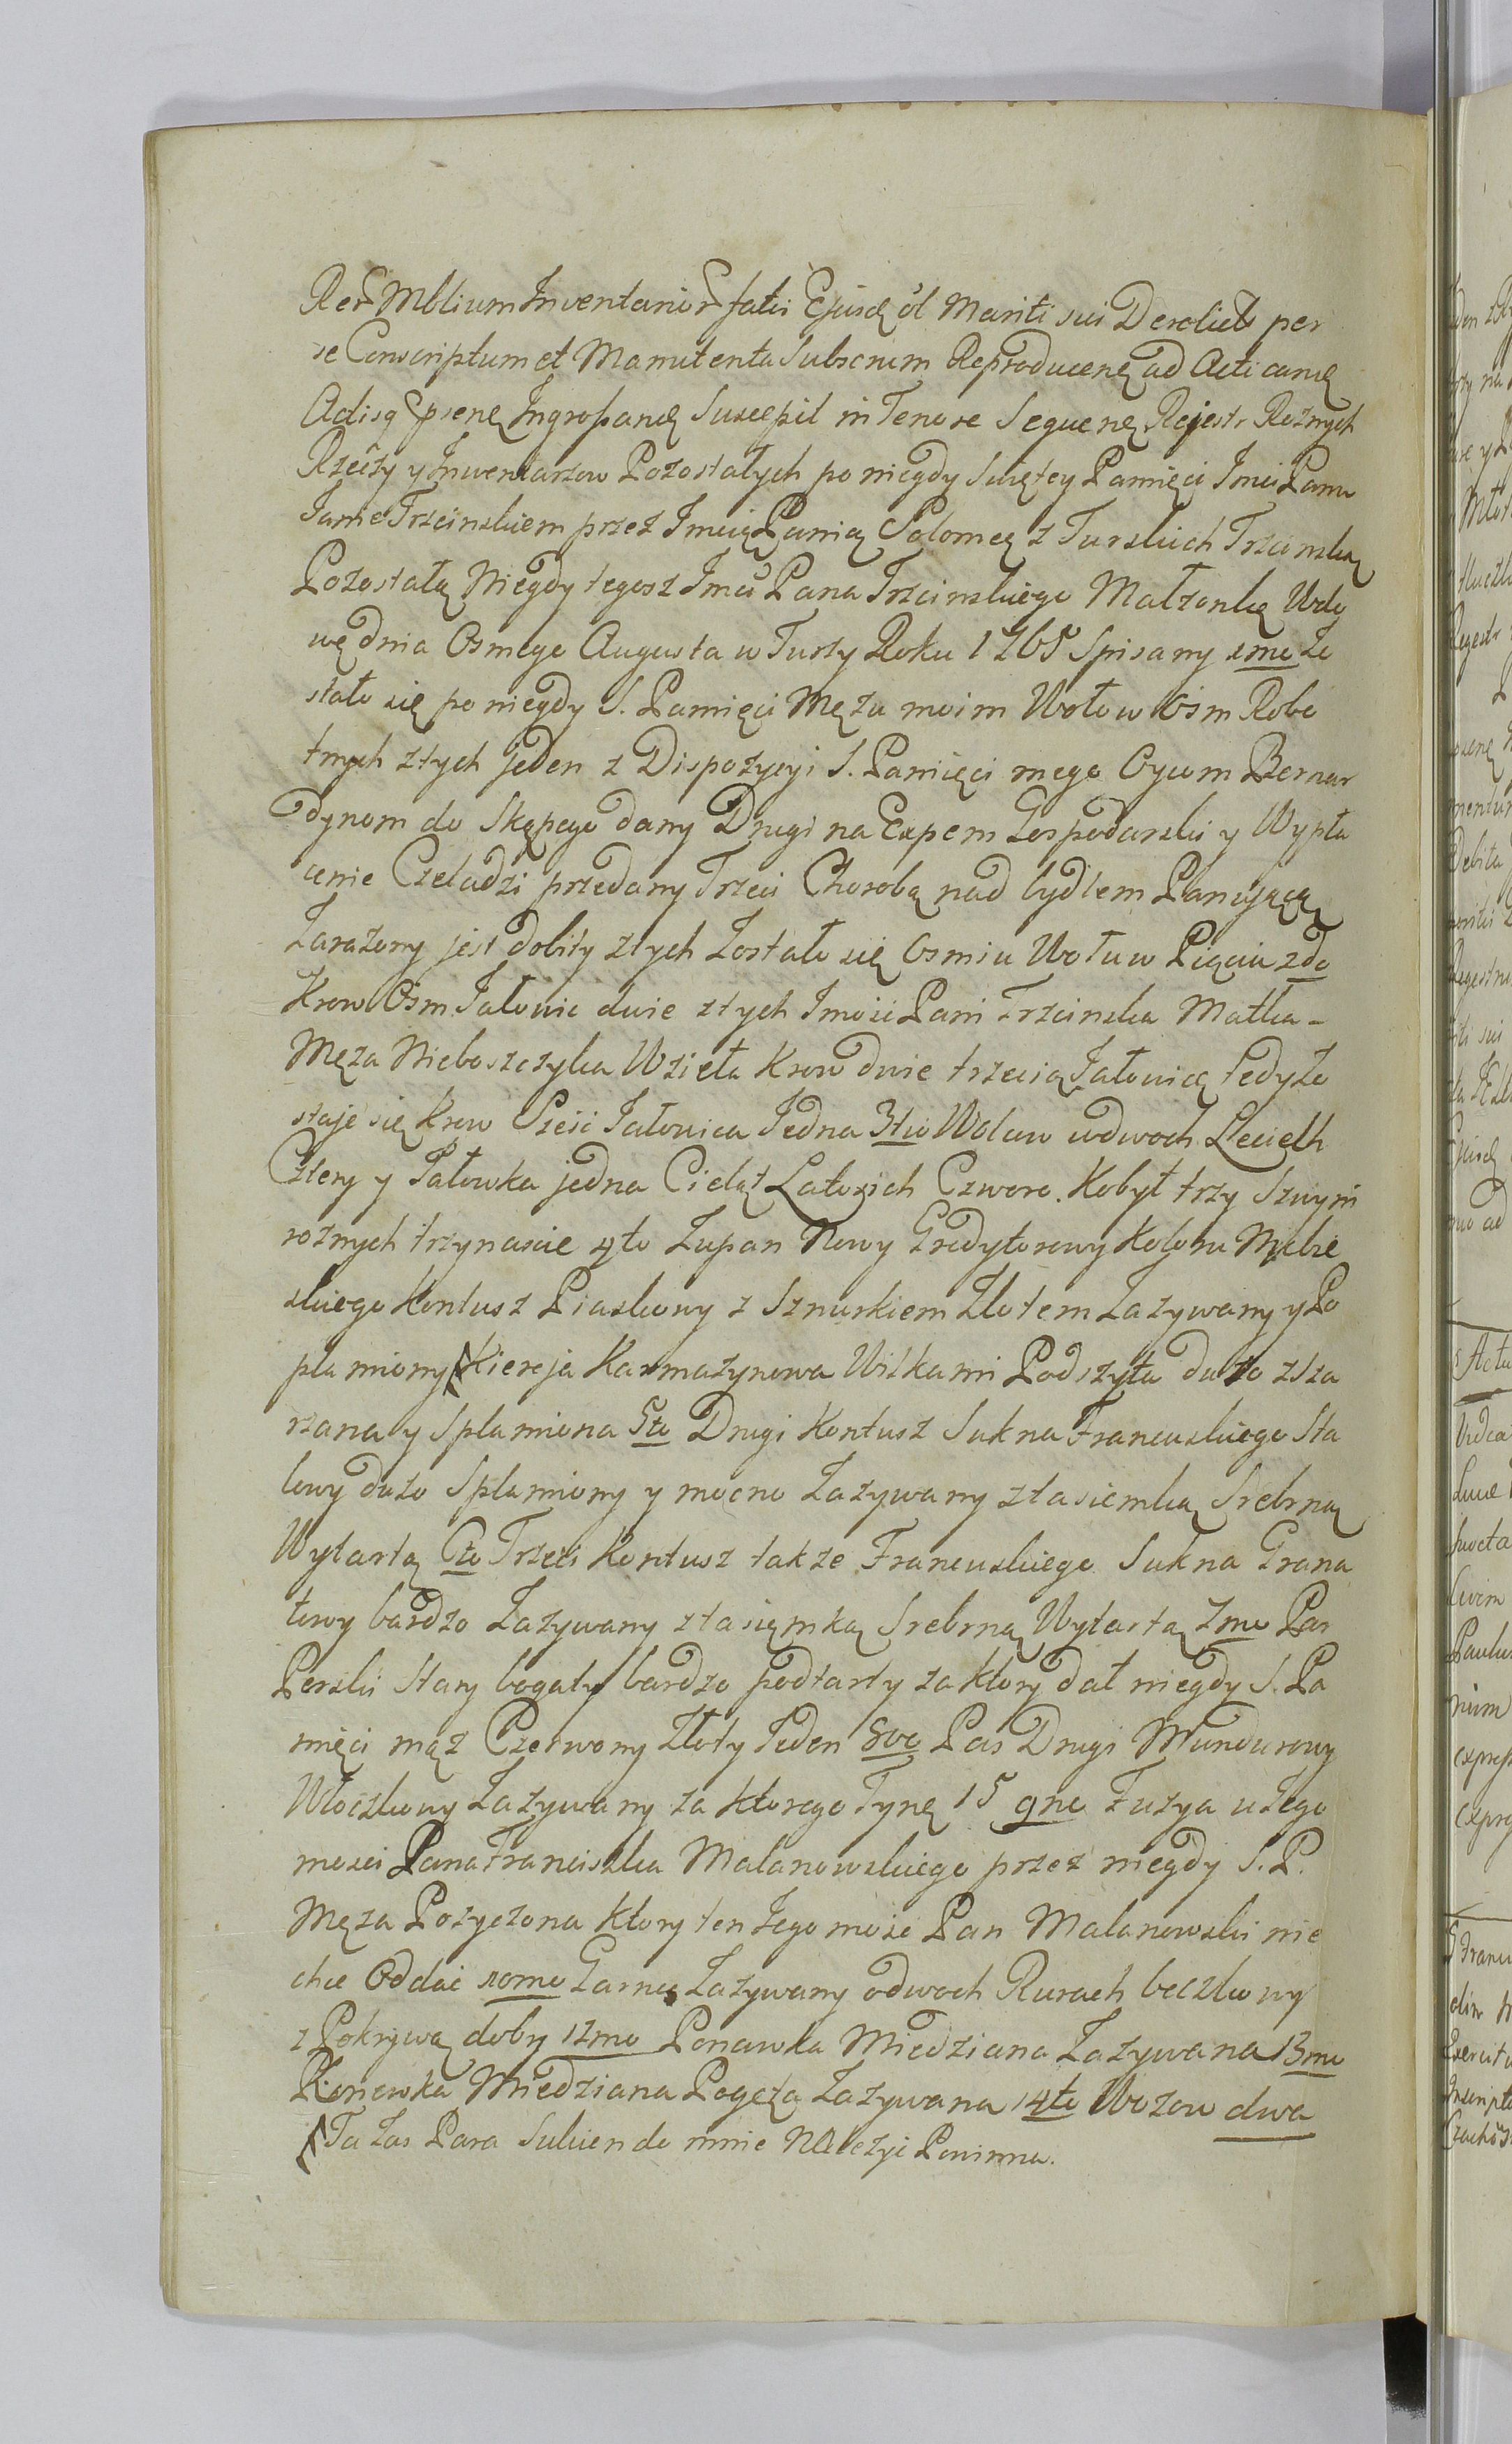 Rer Mblium Inventarior fatis Ejusd ol Mariti sui Derelict per
se Conscriptum et Manutenta Subscrum Reproducene ad Acticand
Adisq psene Ingrossand Suscepit in Tenore Seguene Rejestr Roznych
Rzeczy y Inwentarzow Pozostałych po niegdy Swiętey Pamięci Jmci Panu
Janie Trzcinskiem przez Jmcią Panią Salomeą z Turskich Trzcinską
Pozostałą Niegdy tegosz Jmci Pana Trzcinskiego Małzonkę Wdo
wę dnia Osmego Augusta w Tusty Roku 1765 Spisany 1mo Zo
stało się po niegdy S. Pamięci Mężu moim Wołow Osm Robo
tnych z tych jeden z Dispozycyi S. Pamięci mego Oycom Bernar
dynom do Skępego dany Drugi na Expens Gospodarski y Wypła
cenie Czeladzi przedany Trzeci Chorobą nad bydłem Panującą
Zarazony jest dobity z tych Zostało się Osmiu Wołuw Pięciu 2do
Krow Osm Jałowic dwie z tych Jmośi Pani Trzcinska Matka -
Męza Nieboszczyka Wzieła Krow dwie trzecią Jałowicę tedy Zo
staje się Krow Sześć Jałowica Jedna 3tio Wolcuw wdwoch Lleciech
Cztery y Jałowka jedna Cieląt Latosich Czworo. Kobył trzy Szwyni
roznych trzynascie 4to Zupan Nowy Gredytorowy Koloru Niebie
skiego Kontusz Piaskowy z Sznurkiem Zlotem Zazywany y Po
plamiony Kiereja Karmazynowa Wilkami Podszyta duzo zsza
rzana y Splamiona 5to Drugi Kontusz Sukna Francuskiego Sta
lowy duzo Splamiony y mocno Zazywany z tasiemką Srebrną
Wytartą 6to Trzeci Kontusz takze Francuskiego Sukna Grana
towy bardzo Zazywany z tasięmką Srebrną Wytartą 7mo Pas
Perski Stary bogaty bardzo podtarty za ktory dał niegdy S. Pa
mięci mąz Czerwony Złoty Jeden 8vo Pas Drugi Mundurowy
Włoczkowy Zazywany za ktorego Tynę 15 9no Fuzya u Jego
mosci Pana Franciszka Malanowskiego przez niegdy S. P.
Męza Pozyczona ktory ten Jego mośc Pan Malanowski nie
chce Oddać 10mo Garnek Zazywany o dwoch Rurach beczkowy
z Pokrywą doby 12mo Panawka Miedziana Zazywana 13mo
Konewka Miedziana Pogęta Zazywana 14to Wozow dwa
Ta Zas Para Sukien do mnie Należyć Powinna.